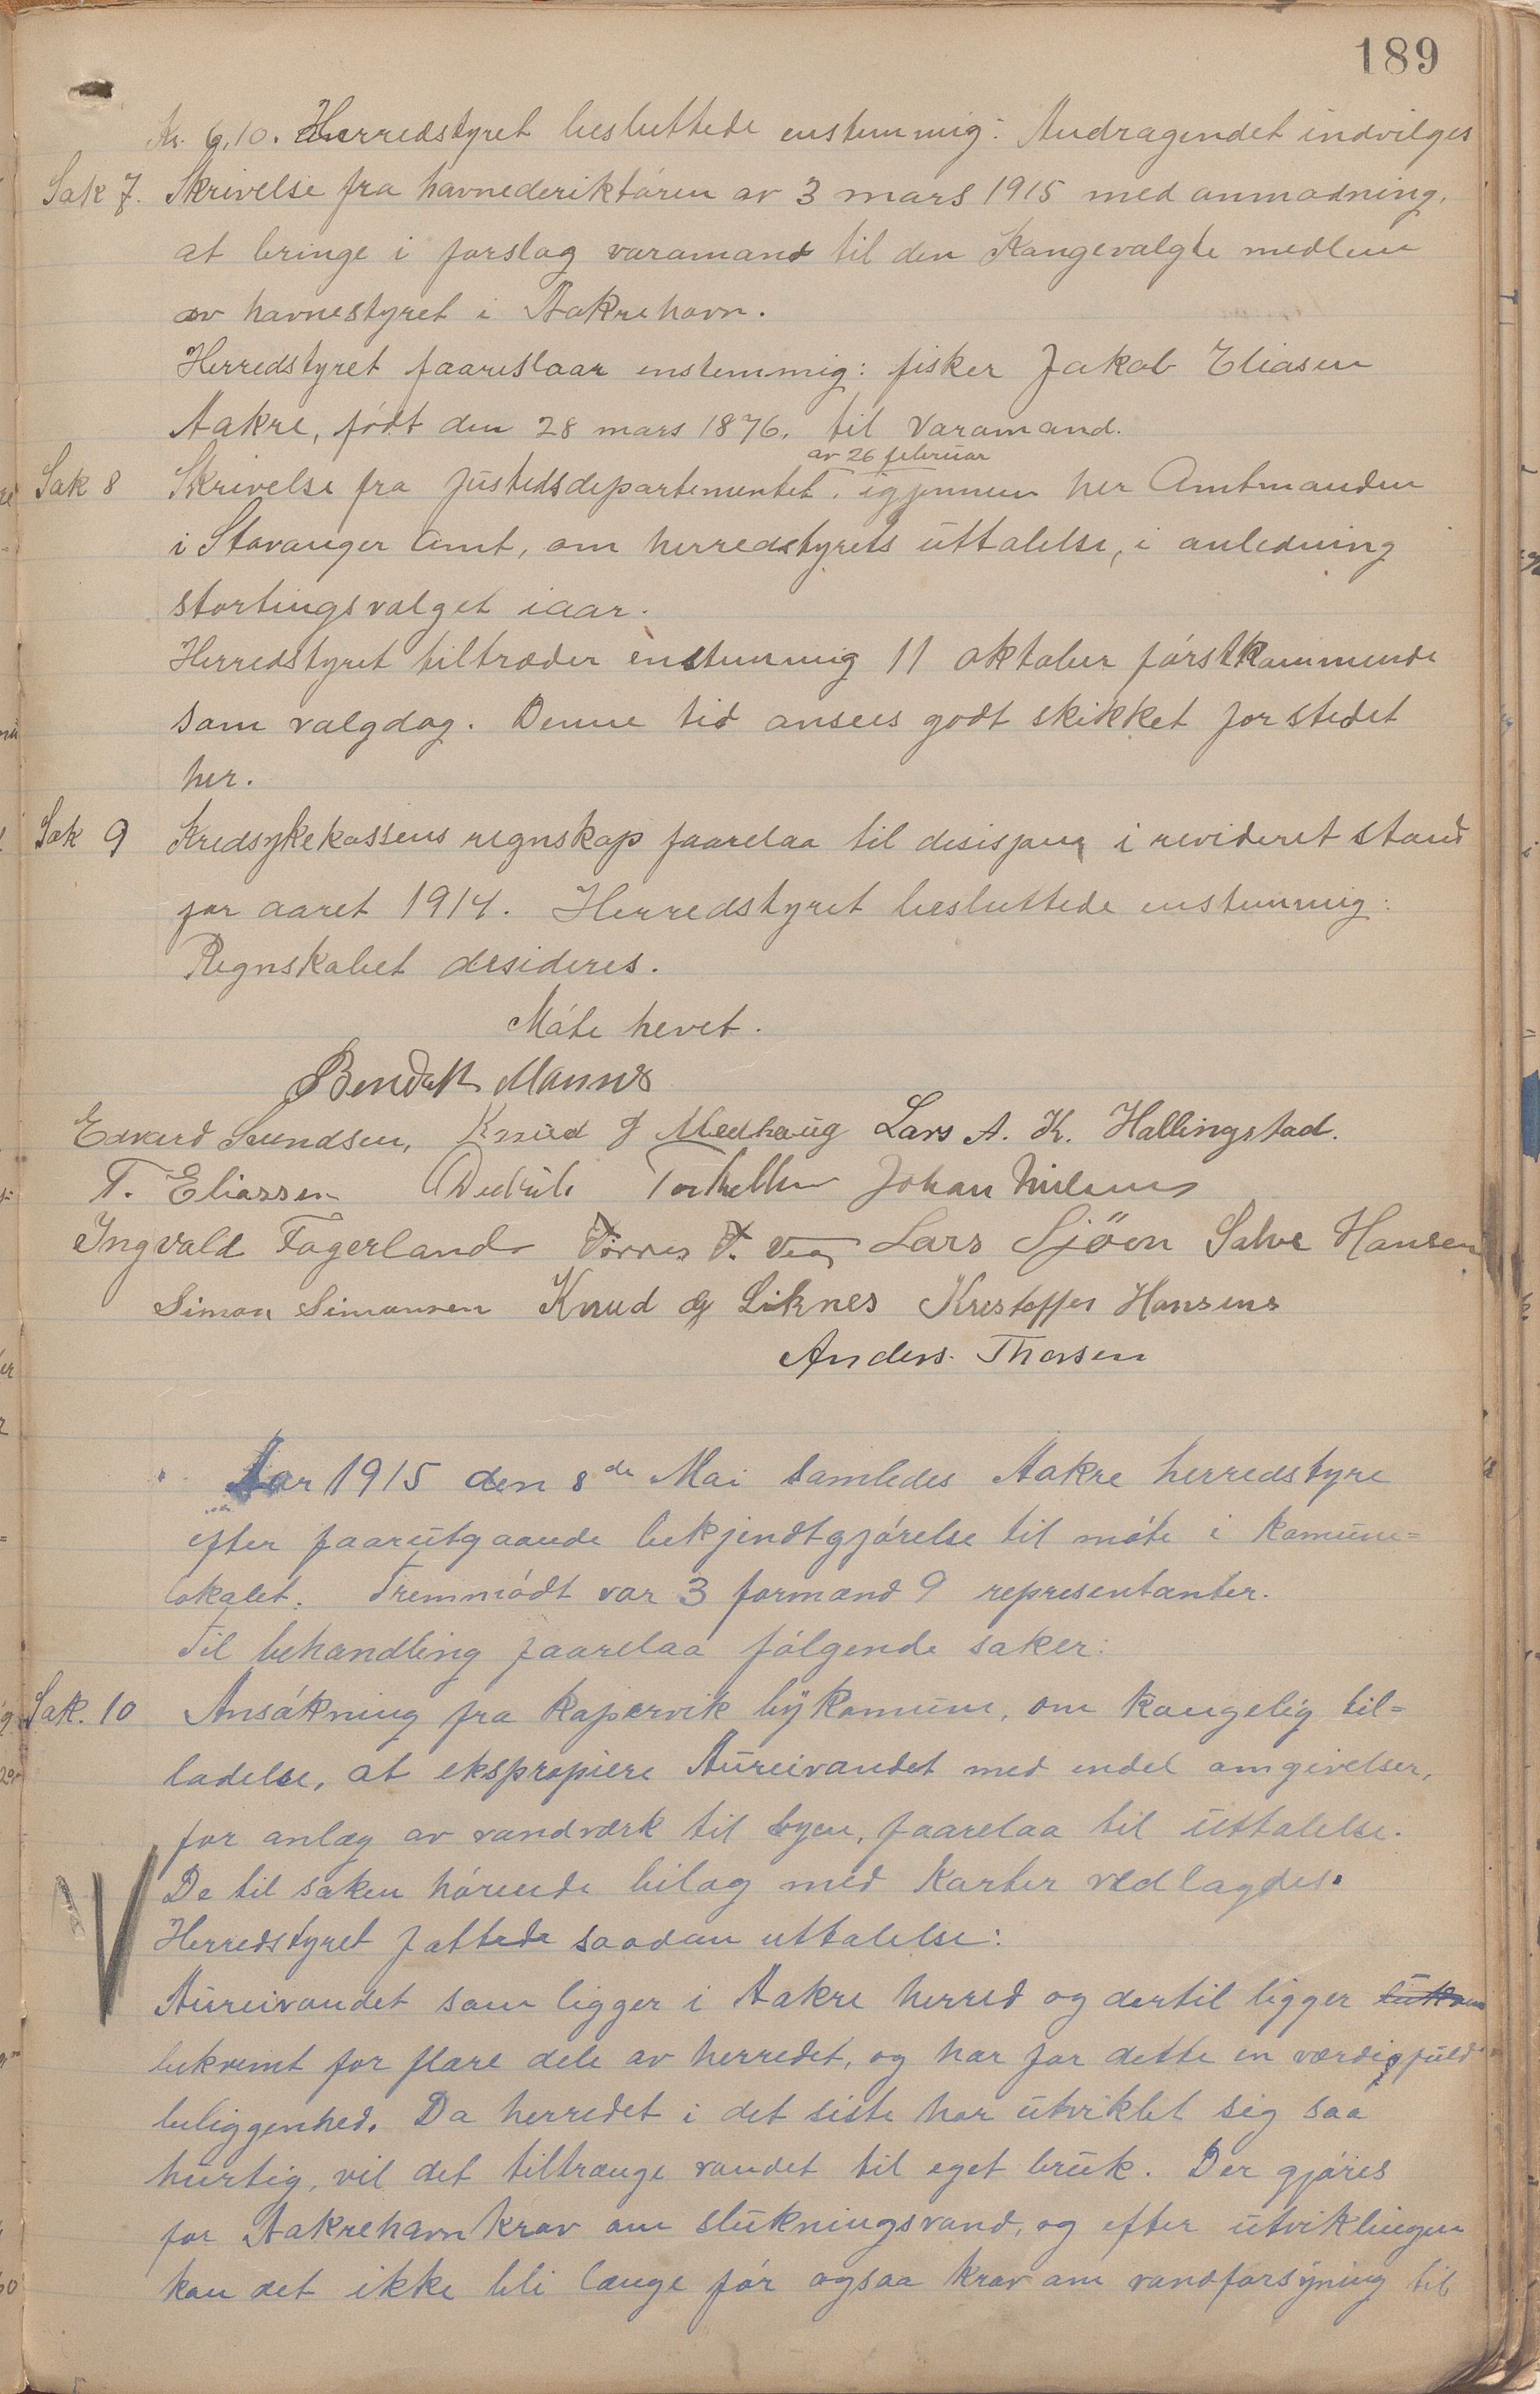 189
Kr. 6,10. Herredstyret besluttede enstemmig: Andragendet indvilges
Sak 7. Skrivelse fra havnederiktøren av 3 mars 1915 med anmodning,
at bringe i forslag varamand til den Kongevalgte medlem
av havnestyret i Aakrehavn.
Herredstyret foareslaar enstemmig: fisker Jakob Eliasen
Aakre, født den 28 mars 1876. til Varamand.
av 26 februar
Sak 8 Skrivelse fra Justedsdepartementet. igjennem her Amtmanden
i Stavanger Amt, om herredstyrets uttalelse, i anledning
stortingsvalget iaar.
Herredstyret tiltræder enstemmig 11 oktober førstkommende
som valgdag. Denne tid ansees godt skikket for stedet
her.
Sak 9 Kredsykekassens regnskap foarelaa til desisjon i revideret stand
for aaret 1914. Herredstyret besluttede enstemmig:
Regnskabet desideres.
Møte hevet.
Bendik Mannes
Edvard Svendsen, Knud J Medhaug Lars A. K. Hallingstad.
T. Eliassen Didrik Torkellsen Johan Nilsens
Ingvald Fagerland Tørres T. Vea Lars Sjøen Salve Hansen
Simon Simonsen Knud G Liknes Kristoffer Hansens
Anders Thorsen
Aar 1915 den 8de Mai samledes Aakre herredstyre
efter foarutgaaende bekjendtgjørelse til møte i Komune=
lokalet. Fremmødt var 3 formænd 9 representanter.
Til behandling foarelaa følgende saker:
Sak. 10 Ansøkning fra Kopervik bykomune, om kongelig til=
ladelse, at ekspropiere Aureivandet med endel omgivelser,
for anlæg av vandværk til byen, foarelaa til uttalelse.
De til saken hørende bilag med Karter vedlagdes.
Herredstyret fattede saadan uttalelse:
Aureivandet som ligger i Aakre herred og dertil ligger
bekvemt for flere dele av herredet, og har for dette en værdigfuld
beliggenhed. Da herredet i det siste har utviklet sig saa
hurtig, vil det tiltrænge vandet til eget bruk. Der gjøres
for Aakrehavn krav om slukningsvand, og efter utviklingen
kan det ikke bli længe før ogsaa krav om vandforsyning til